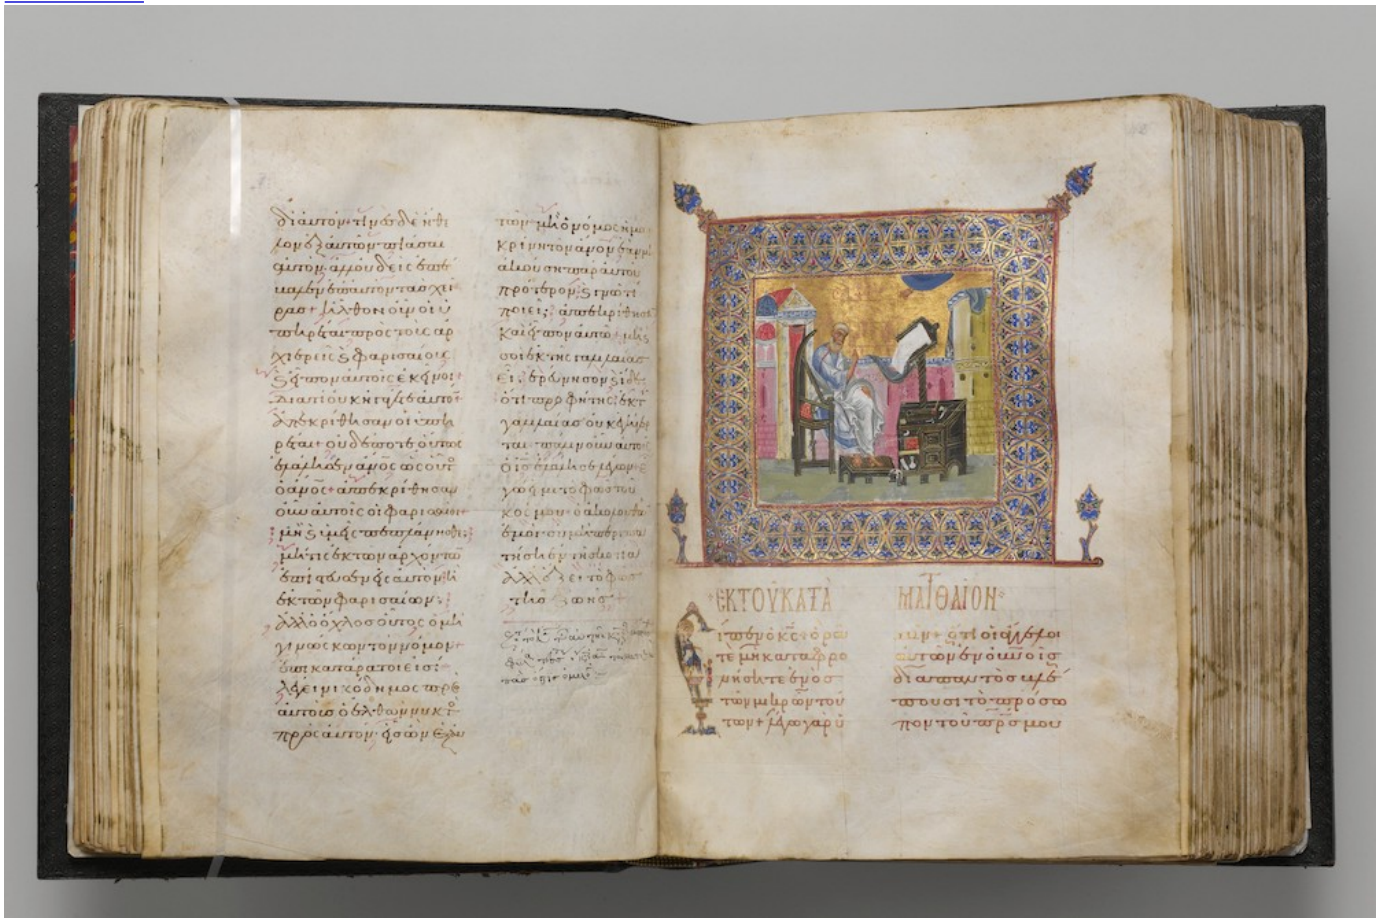 δι αὐτόν· τινὲς δὲ ἤθε
λον ἐξ αὐτῶν πιάσαι
αὐτόν· ἀλλ οὐδεὶς ἐπέ
βαλεν ἐπ αὐτὸν τὰς χεῖ
ρας+ ἦλθον οὖν οἱ ὑ
πηρέται πρὸς τοὺς ἀρ
χιερεῖς ϗ φαρισαίους·
ϗ εἶπον αὐτοῖς ἐκεῖνοι·
διατί οὐκ ἠγάγετε αὐτόν·
ἀπεκρίθησαν οἱ ὑπη
ρέται· οὐδέποτε οὕτως
ἐλάλησεν ἄνος ὡς οὗτ
ὁ ἄνος· ἀπεκρίθησαν
οὖν αὐτοῖς οἱ φαρισαῖοι·
μὴ ϗ ὑμεῖς πεπλάνησθε;
μή τις ἐκ τῶν ἀρχόντω
ἐπίστευσεν εἰς αὐτὸν ἢ
ἐκ τῶν φαρισαίων;
ἀλλ ὁ ὄχλος οὗτος ὁ μὴ
γινώσκων τὸν νόμον
ἐπικατάρατοί εἰσι·
λέγει νικόδημος πρὸ
αὐτοὺς ὁ ἐλθὼν νυκτὸ
πρὸς αὐτόν· εἷς ὢν ἐξ αὐ
τῶν· μὴ ὁ νόμος ἡμῶ
κρίνει τὸν ἄνον ἐὰν μὴ
ἀκούσῃ παρ αὐτοῦ
πρότερον ϗ γνῶ τί
ποιεῖ; ἀπεκρίθησα
καὶ εἶπον αὐτῷ· μὴ ϗ
σὺ ἐκ τῆς γαλιλαίας
εἶ; ἐρώνησον ϗ ἴδε
ὅτι προφήτης ἐκ τ
γαλιλαίας οὐκ ἐγήγερ
ται· πάλιν οὖν αὐτοῖς
ὁ ις ἐλάλησε λέγων·
ἐγώ εἰμι τὸ φῶς τοῦ
κόσμου· ὁ ἀκολουθῶ
ἐμοὶ· οὐ μὴ περιπα
τήσῃ ἐν τῇ σκοτίᾳ
ἀλλ ἕξει τὸ φῶς
τῆς ζωῆς+
ἘΚ ΤΟΥ ΚΑΤΑ ΜΑΤΘΑΙΟΝ
Εἶπεν ὁ κς· ὁρᾶ
τε μὴ καταφρο
νήσητε ἑνὸς
τῶν μικρῶν τού
των+ λέγω γὰρ ὑ
μῖν+ ὅτι οἱ ἄγγελοι
αὐτῶν ἐν οὐνοις
διαπαντὸς βλέ
πουσι τὸ πρόσω
πον τοῦ πρς μου